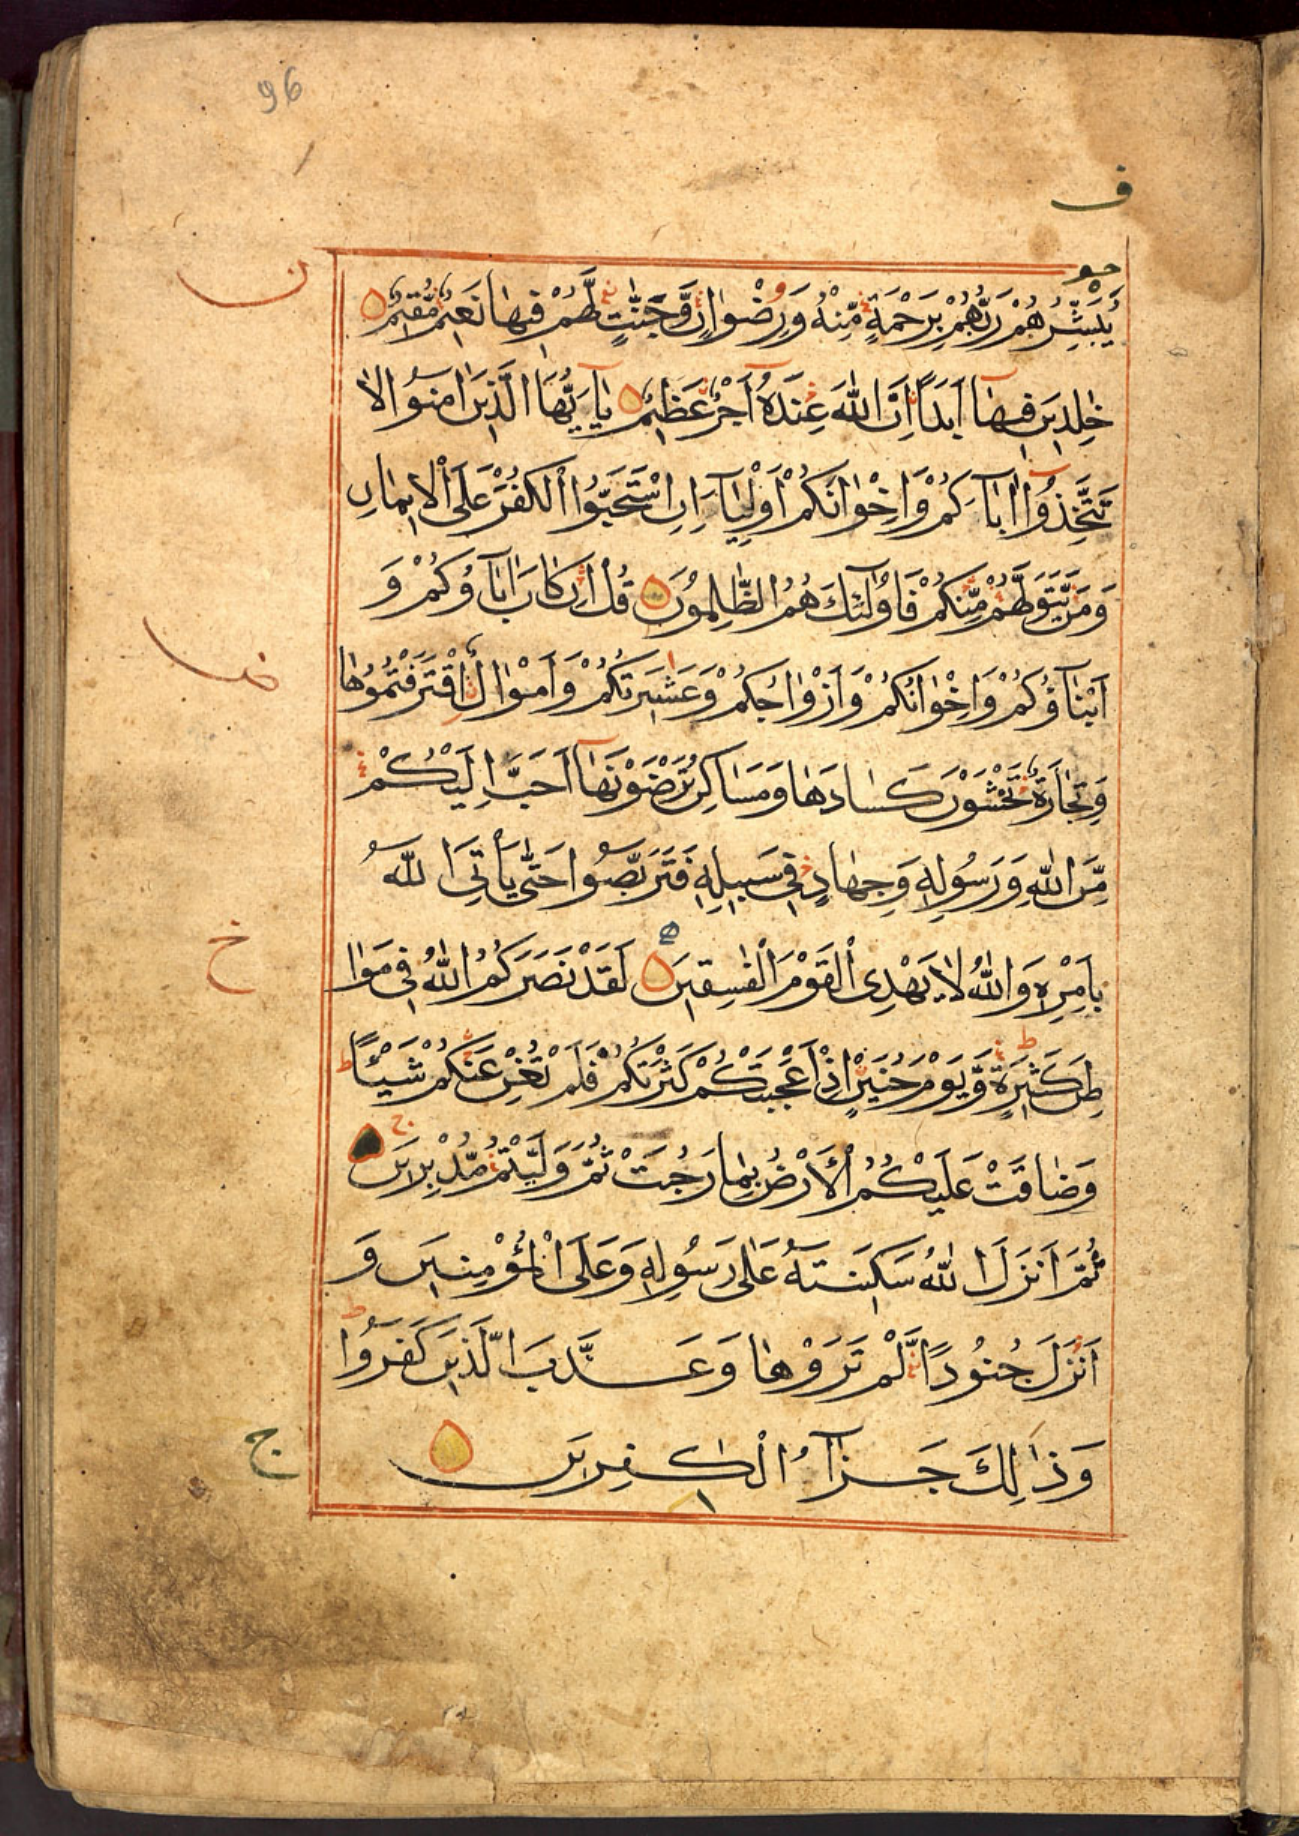 96
ف
يُبَشِّرُهُمْ رَبُّهُمْ بِرَحْمَةٍ مِّنْهُ وَرِضْوَانٍ وَّجَنّٰتٍ لَّهُمْ فِيهَا نَعِيمٌ مُّقِيمٌ
خٰلِدِينَ فِيهَآ اَبَدًا اِنَّ اللّٰهَ عِنْدَهُ اَجْرٌ عَظِيمٌ يٰٓاَيُّهَا الَّذِينَ اٰمَنُوا لَا
تَتَّخِذُوٓا اٰبَآءَكُمْ وَاِخْوَانَكُمْ اَوْلِيَآءَ اِنِ اسْتَحَبُّوا الْكُفْرَ عَلَى الْاِيمَانِ
وَمَنْ يَّتَوَلَّهُمْ مِّنْكُمْ فَاُولٰٓئِكَ هُمُ الظّٰلِمُونَ قُلْ اِنْ كَانَ اٰبَآؤُكُمْ وَ
اَبْنَآؤُكُمْ وَاِخْوَانُكُمْ وَاَزْوَاجُكُمْ وَعَشِيرَتُكُمْ وَاَمْوَالٌ اقْتَرَفْتُمُوهَا
وَتِجَارَةٌ تَخْشَوْنَ كَسَادَهَا وَمَسَاكِنُ تَرْضَوْنَهَآ اَحَبَّ اِلَيْكُمْ
مِّنَ اللّٰهِ وَرَسُولِهِ وَجِهَادٍ فِي سَبِيلِهِ فَتَرَبَّصُوا حَتّٰى يَاْتِيَ اللّٰهُ
بِاَمْرِهِ وَاللّٰهُ لَا يَهْدِى الْقَوْمَ الْفٰسِقِينَ لَقَدْ نَصَرَكُمُ اللّٰهُ فِي مَوَا
طِنَ كَثِيرَةٍ وَّيَوْمَ حُنَيْنٍ اِذْ اَعْجَبَتْكُمْ كَثْرَتُكُمْ فَلَمْ تُغْنِ عَنْكُمْ شَيْئًا
وَضَاقَتْ عَلَيْكُمُ الْاَرْضُ بِمَا رَحُبَتْ ثُمَّ وَلَّيْتُمْ مُّدْبِرِينَ
ثُمَّ اَنْزَلَ اللّٰهُ سَكِينَتَهُ عَلٰى رَسُولِهِ وَعَلَى الْمُؤْمِنِينَ وَ
اَنْزَلَ جُنُودًا لَّمْ تَرَوْهَا وَعَذَّبَ الَّذِينَ كَفَرُوا
وَذٰلِكَ جَزَآءُ الْكٰفِرِينَ